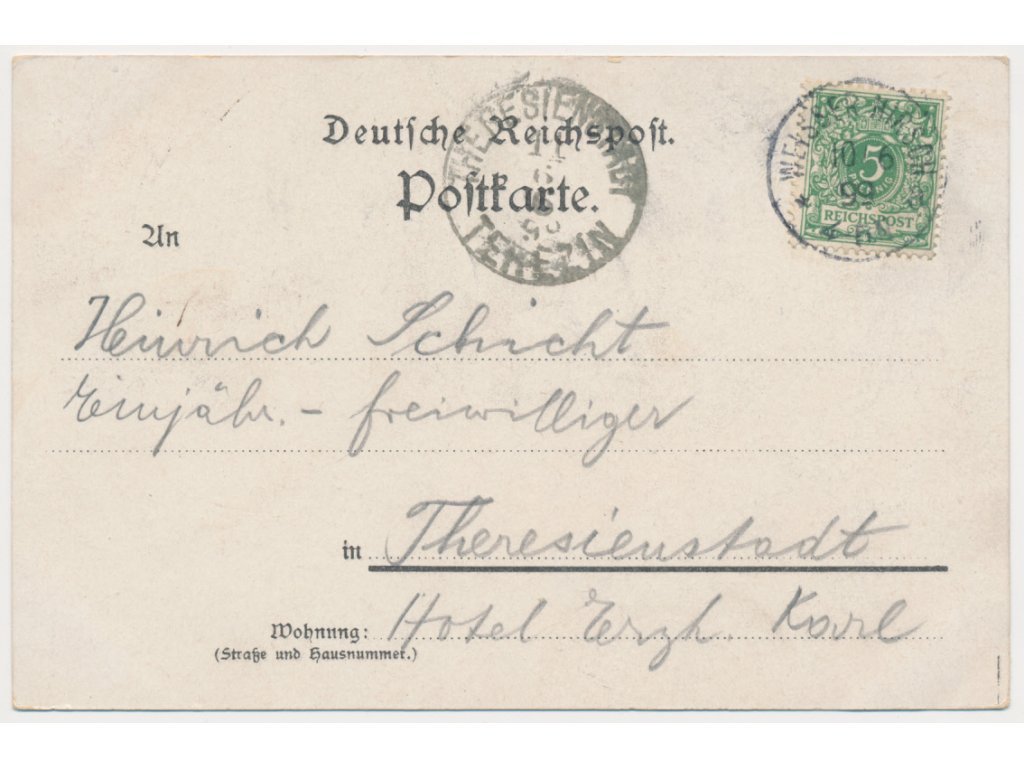 Deutsche Reichspost.
Postkarte.
THERESIENSTADT
11
6
TEREZIN
WEISSER HIRSCH
10 6
99
5
REICHSPOST
An
Heinrich Schicht
Einjähr. - freiwilliger
in Theresienstadt
Wohnung: Hotel Erzh. Karl
(Straße und Hausnummer.)